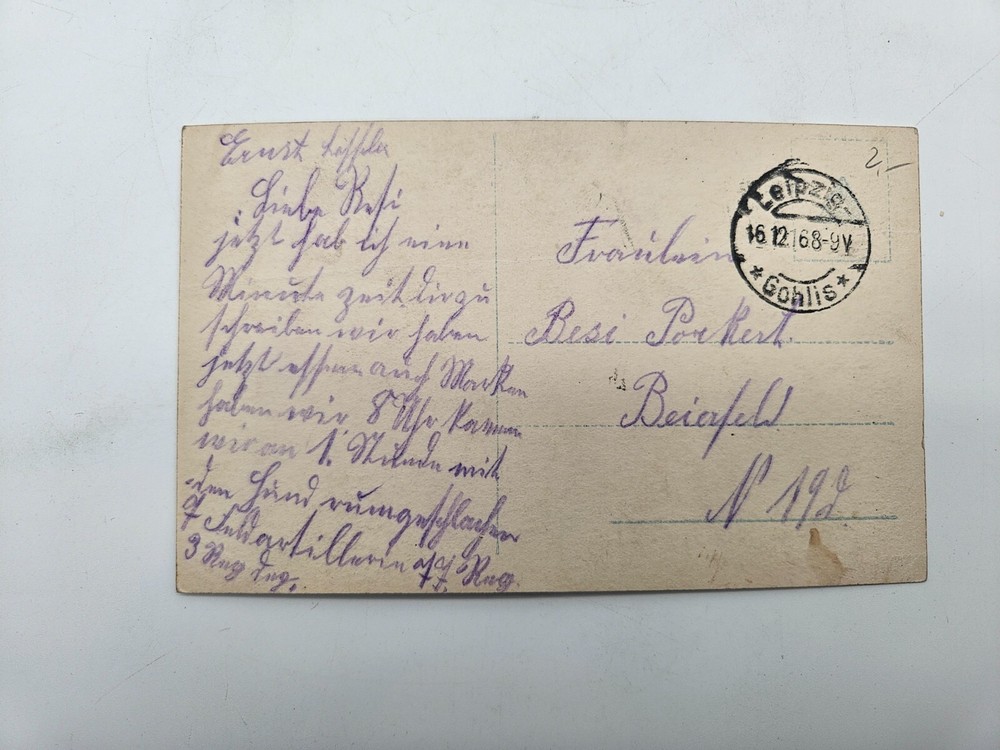 Ernst
Liebe Resi
jetzt hab ich eine
Minute zeit dir zu
schreiben wir haben
jetzt essen auch Marken
haben wir 8 Uhr kamen
wir an 1. Stunde mit
den Hund rumgeschlachen
Feldartillerie 77. Reg.
3
2,-
Leipzig-
16.12.16 8-9V
* Gohlis *
Fräulein
Resi Porkert
Beierfeld
N 19